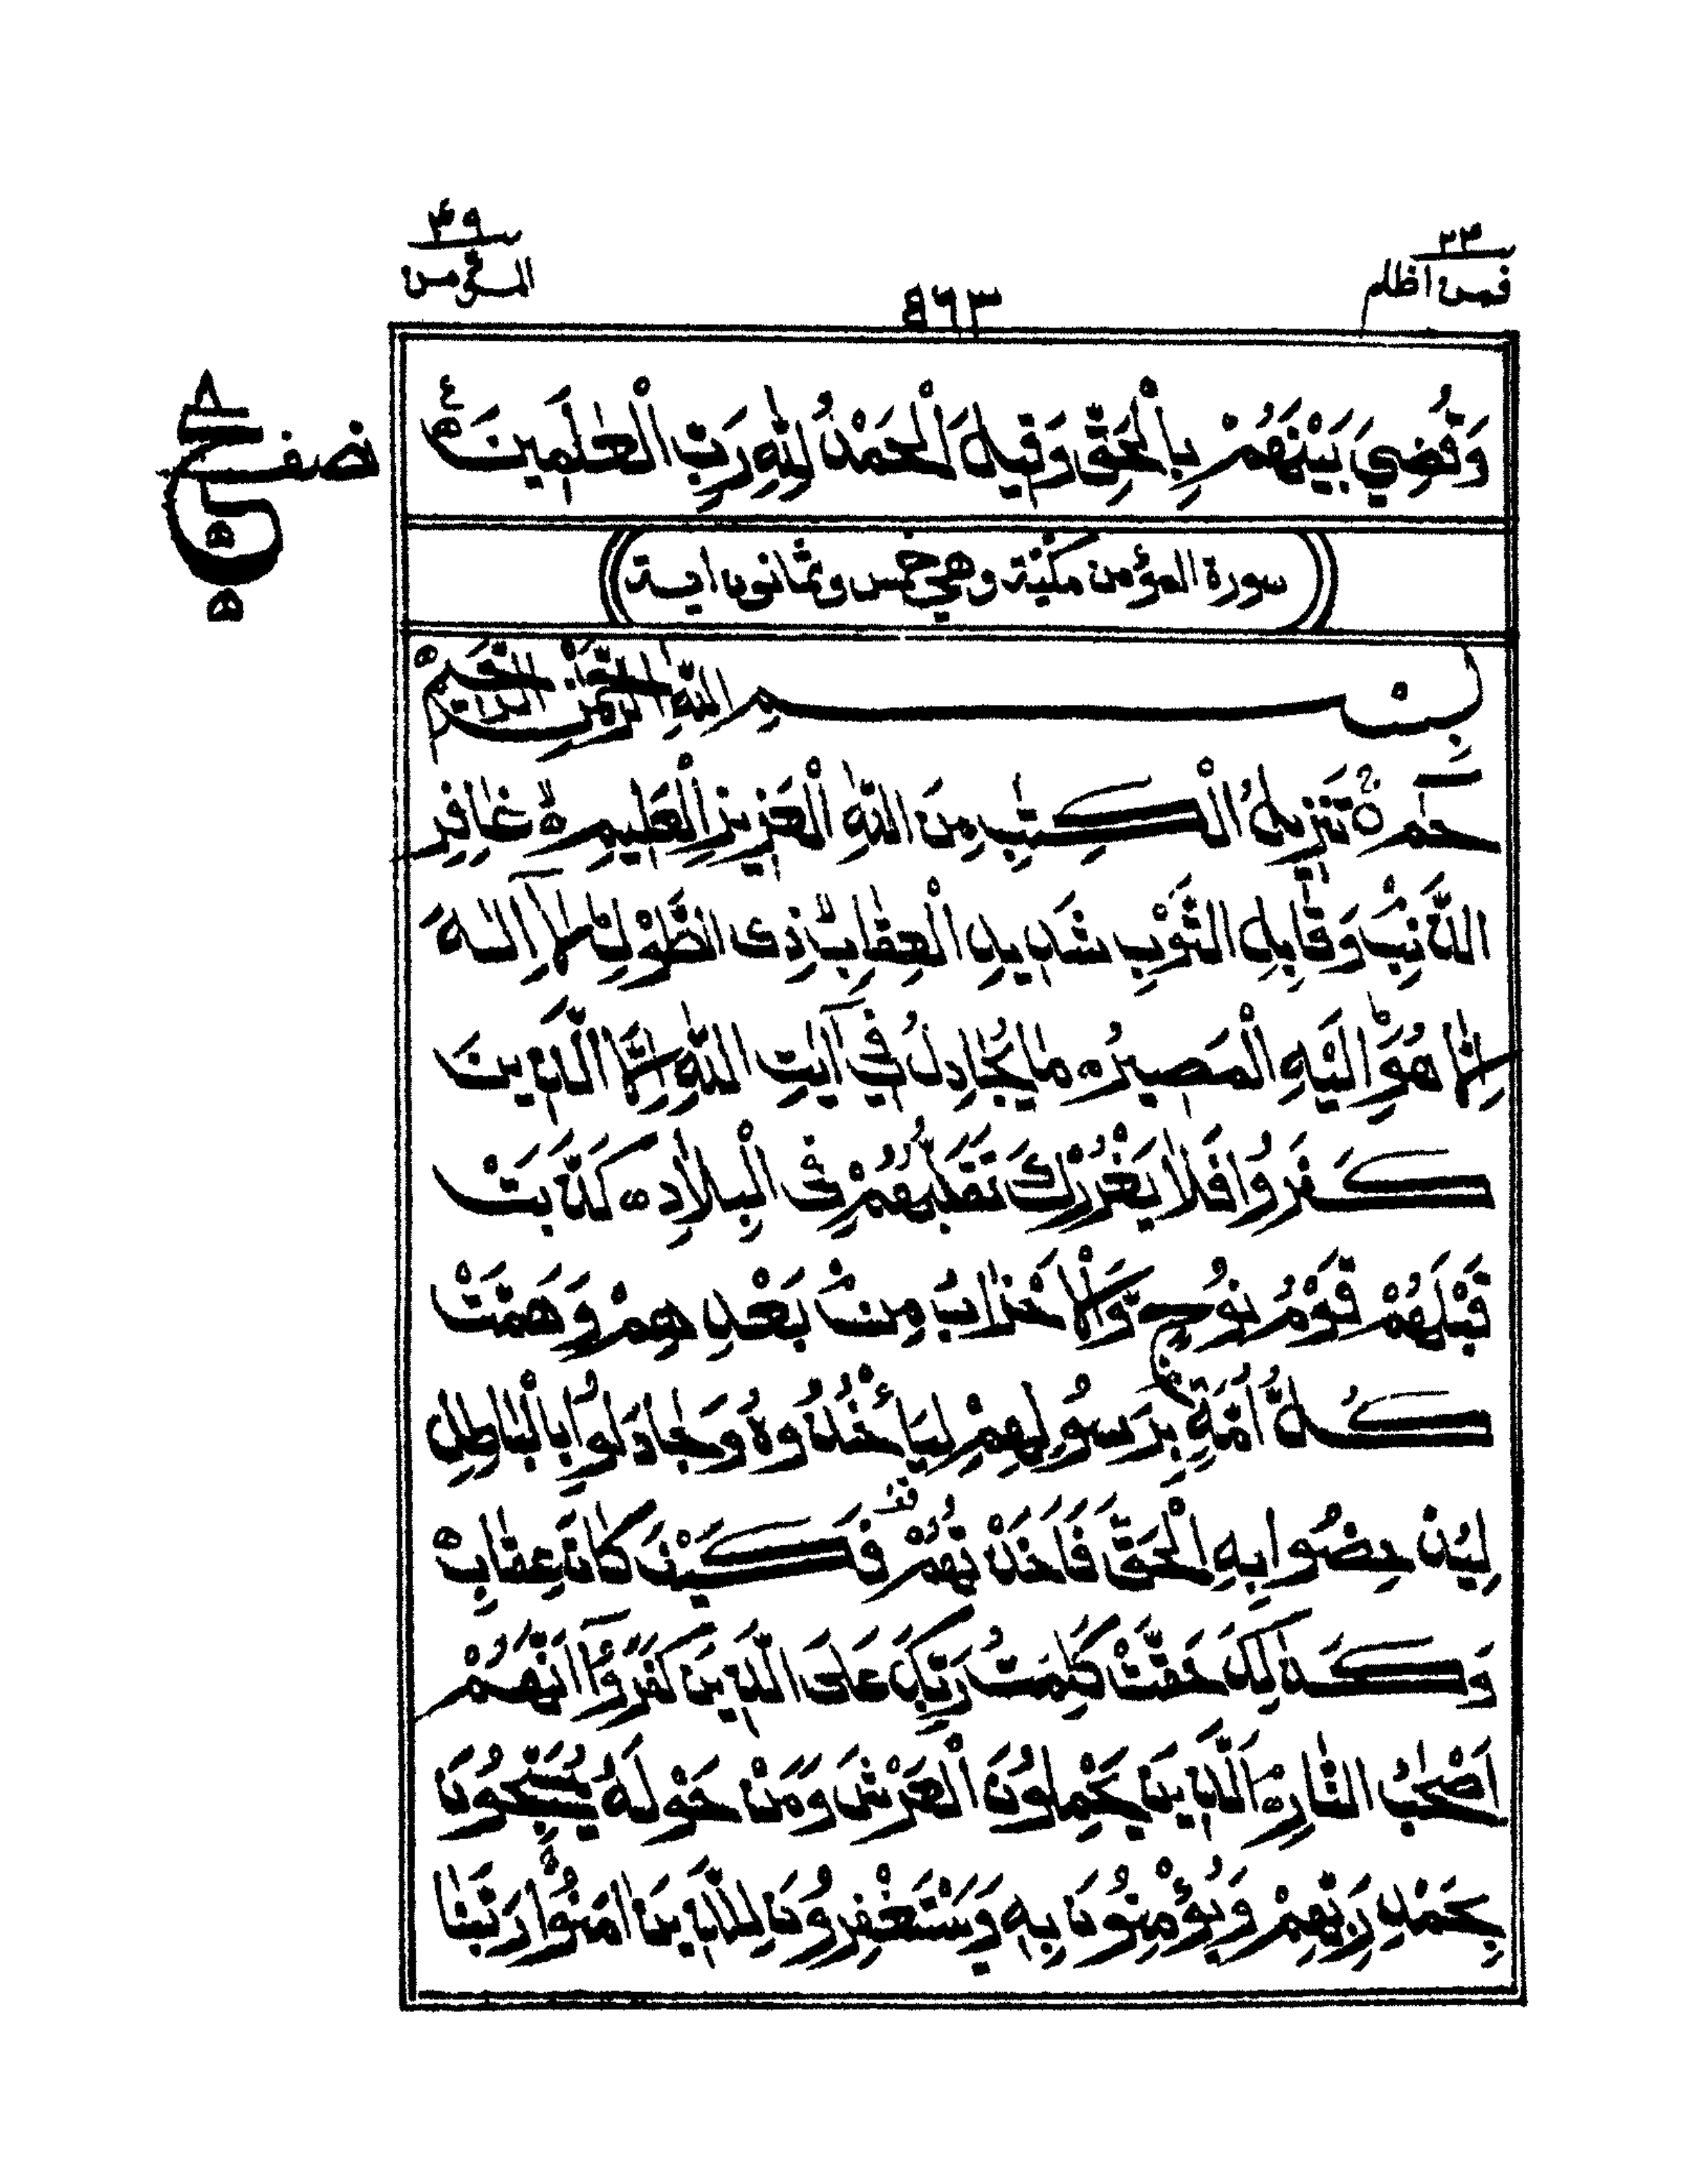 ۲۴
فمن اظلم
۴۰
المؤمن
٤٦٣
وَقُضِيَ بَيْنَهُمْ بِالْحَقِّ وَقِيلَ الْحَمْدُ لِلّٰهِ رَبِّ الْعٰلَمِينَ
نصف
سورة المؤمن مكيّة وهي خمس وثمانون اية
بِسْمِ اللّٰهِ الرَّحْمٰنِ الرَّحِيمِ
حٰمٓ ۝ تَنْزِيلُ الْكِتٰبِ مِنَ اللّٰهِ الْعَزِيزِ الْعَلِيمِ ۝ غَافِرِ
الذَّنْبِ وَقَابِلِ التَّوْبِ شَدِيدِ الْعِقَابِ ذِى الطَّوْلِ لَآ اِلٰهَ
اِلَّا هُوَ اِلَيْهِ الْمَصِيرُ ۝ مَا يُجَادِلُ فِيٓ آيٰتِ اللّٰهِ اِلَّا الَّذِينَ
كَفَرُوا فَلَا يَغْرُرْكَ تَقَلُّبُهُمْ فِى الْبِلَادِ ۝ كَذَّبَتْ
قَبْلَهُمْ قَوْمُ نُوحٍ وَّالْاَحْزَابُ مِنْ بَعْدِهِمْ وَهَمَّتْ
كُلُّ اُمَّةٍ بِرَسُولِهِمْ لِيَأْخُذُوهُ وَجَادَلُوا بِالْبَاطِلِ
لِيُدْحِضُوا بِهِ الْحَقَّ فَاَخَذْتُهُمْ فَكَيْفَ كَانَ عِقَابِ ۝
وَكَذٰلِكَ حَقَّتْ كَلِمَتُ رَبِّكَ عَلَى الَّذِينَ كَفَرُوٓا اَنَّهُمْ
اَصْحٰبُ النَّارِ ۝ اَلَّذِينَ يَحْمِلُونَ الْعَرْشَ وَمَنْ حَوْلَهُ يُسَبِّحُونَ
بِحَمْدِ رَبِّهِمْ وَيُؤْمِنُونَ بِهِ وَيَسْتَغْفِرُونَ لِلَّذِينَ اٰمَنُوا رَبَّنَا